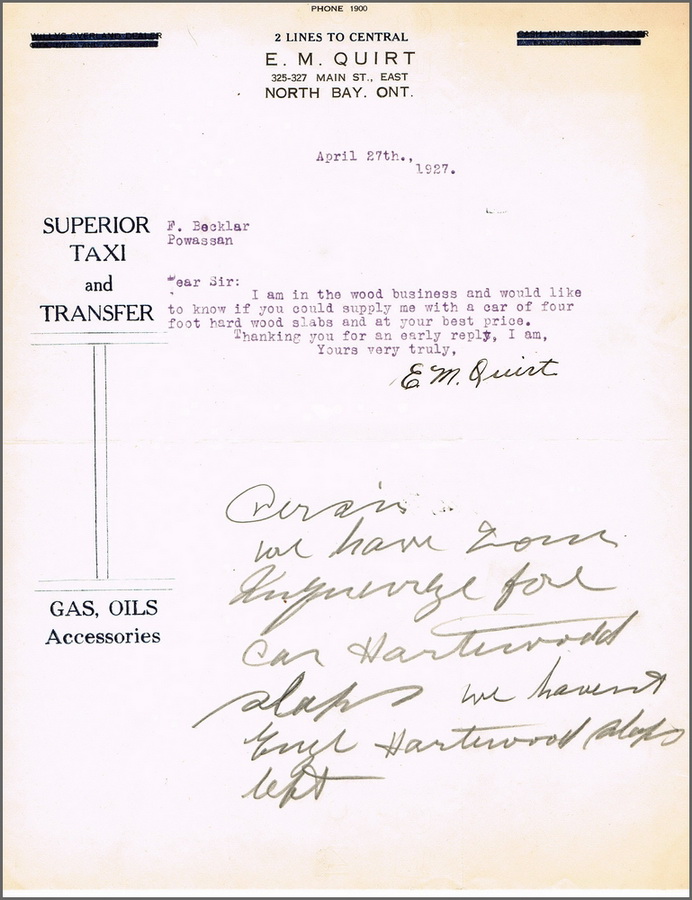 PHONE 1900
WILLYS OVERLAND DEALER
2 LINES TO CENTRAL
CASH AND CREDIT GROCER
E. M. QUIRT
325-327 MAIN ST., EAST
NORTH BAY. ONT.
April 27th.,
1927.
SUPERIOR
TAXI
and
TRANSFER
F. Becklar
Powassan
Dear Sir:
I am in the wood business and would like
to know if you could supply me with a car of four
foot hard wood slabs and at your best price.
Thanking you for an early reply, I am,
Yours very truly,
E M. Quirt
GAS, OILS
Accessories
we have
for
Car Hartwood
slaps we havent
Hartwood slaps
left